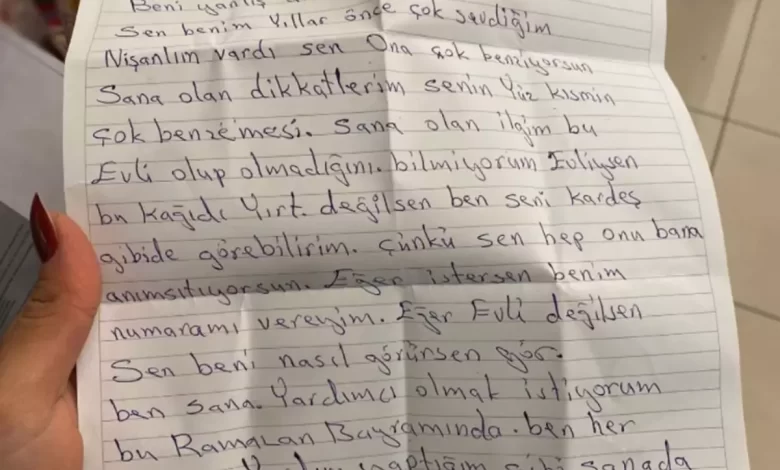 Beni yanlış
Sen benim Yıllar önce çok sevdiğim
Nişanlım vardı sen Ona çok benziyorsun
Sana olan dikkatlerim senin Yüz kısmin
çok benzemesi. Sana olan ilgim bu
Evli olup olmadığını. bilmiyorum Evliysen
bu kağıdı Yırt. değilsen ben seni kardeş
gibide görebilirim. çünkü sen hep onu bana
anımsıtıyorsun. Eğer istersen benim
numaramı vereyim. Eğer Evli değilsen
Sen beni nasıl görürsen gör.
ben sana. Yardımcı olmak istiyorum
bu Ramazan Bayramında. ben her
yaptığım gibi sanada